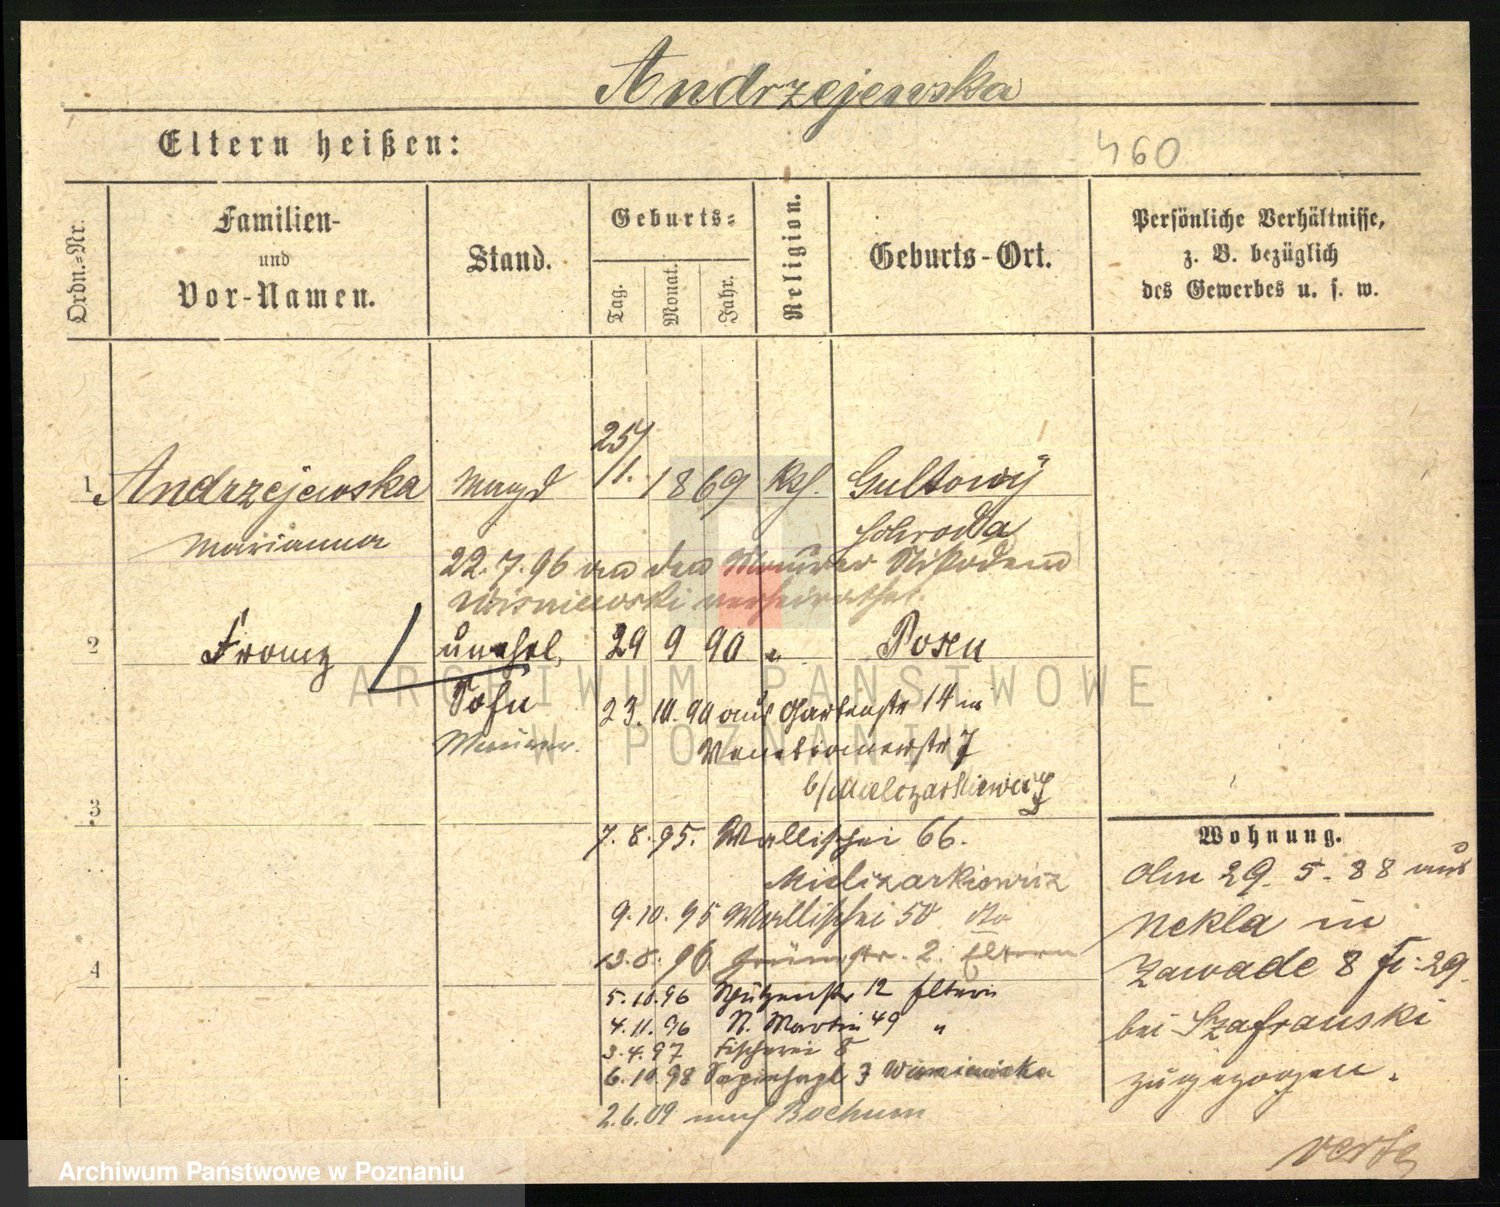 Andrzejewska
Eltern heißen:
460
Ordn.-Nr.
Familien-
und
Vor-Namen.
Stand.
Geburts-
Tag.
Monat.
Jahr.
Religion.
Geburts-Ort.
Persönliche Verhältnisse,
z. B. bezüglich
des Gewerbes u. s. w.
1 Andrzejewska Magd 25/11. 1869 Kth. Gultowy
Marianna Schroda
22.7.96 an den Maurer Nikodem
Wisniewski verheirathet.
2 Franz unehel. 29 9 90 " Posen
Sohn
Maurer.
23.10.90 aus Gartenstr 14 in
Venetianerstr 7
b/
3
7.8.95. Wallischei 66.
Mielcarkiewicz
9.10.95 Wallischei 50 do
4
13.8.96 Grünestr. 2. Eltern
5.10.96 Schützenstr 12 Eltern
4.11.96 St. Martin 49 "
3.4.97 Fischerei 8
6.10.98 Sapiehapl 3 Wisniewska
2.6.09 nach Bochum
Wohnung.
Am 29.5.88 aus
Nekla in
Zawade 8 Fr. 29.
bei Szafranski
zugezogen.
verte
ARCHIWUM PAŃSTWOWE
W POZNANIU
Archiwum Państwowe w Poznaniu